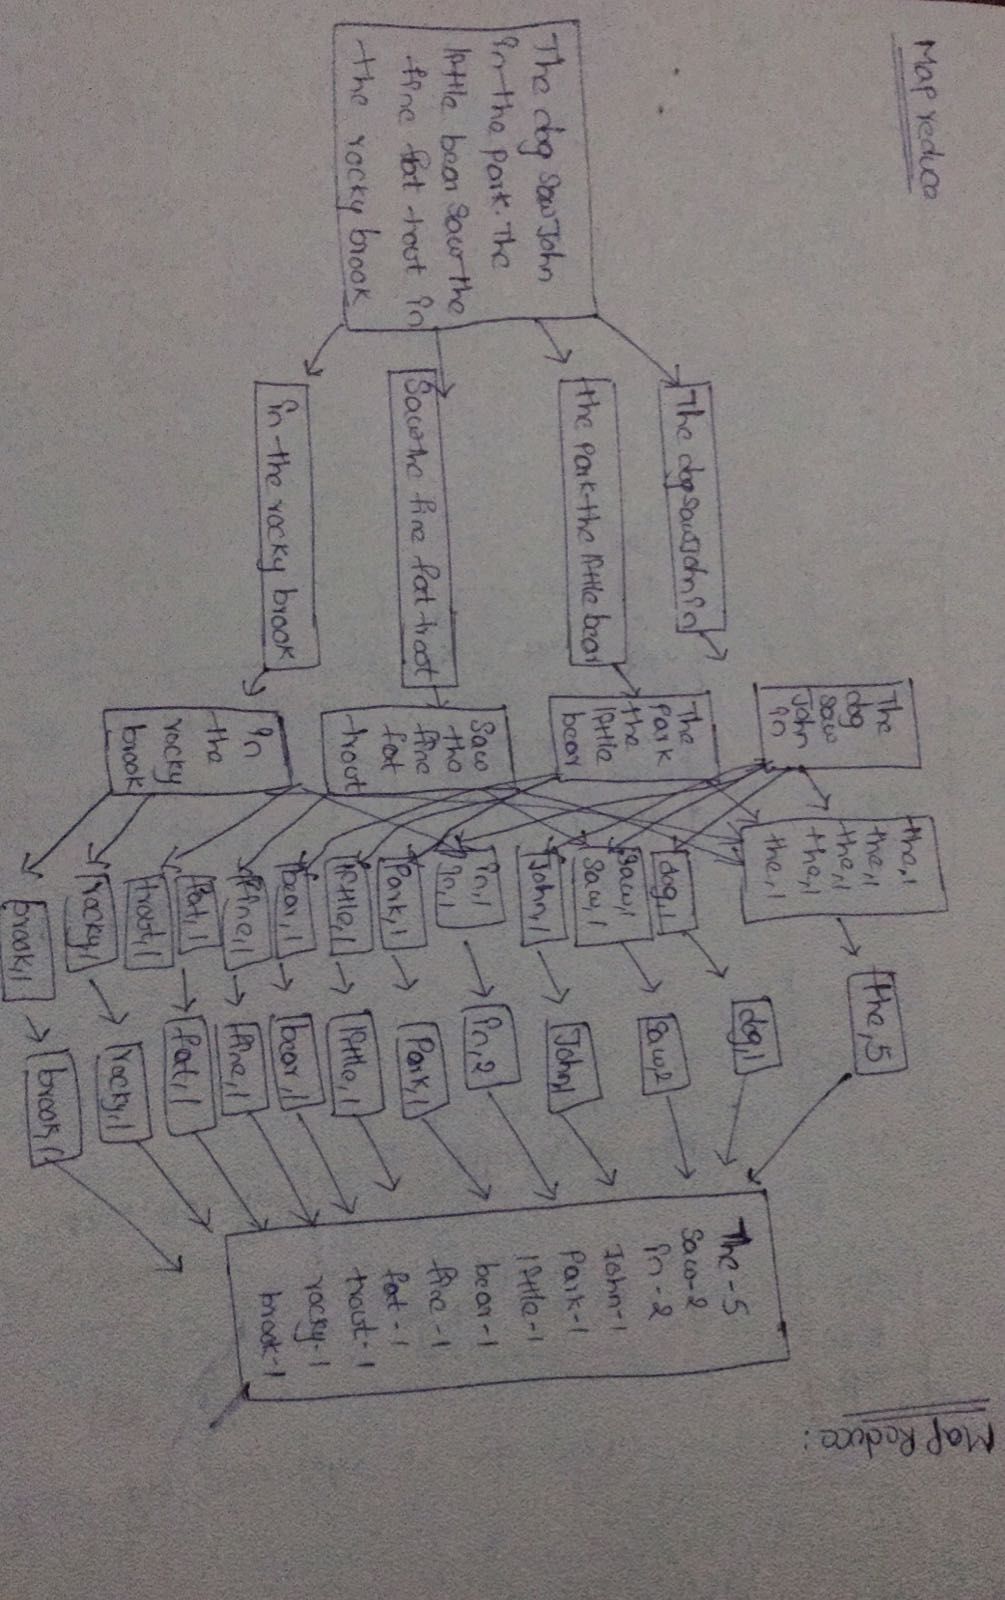 Map reduce
The dog saw John
in the park. The
little bear saw the
fine fat trout in
the rocky brook
The dog saw John in
the park the little bear
Saw the fine fat trout
in the rocky brook
The
dog
saw
John
in
The
park
the
little
bear
Saw
the
fine
fat
trout
in
the
rocky
brook
the,1
the,1
the,1
the,1
the,1
dog,1
Saw,1
Saw,1
John,1
in,1
in,1
Park,1
little,1
bear,1
fine,1
fat,1
trout,1
rocky,1
brook,1
the,5
dog,1
Saw,2
John,1
in,2
Park,1
little,1
bear,1
fine,1
fat,1
rocky,1
brook,1
The - 5
Saw - 2
in - 2
John - 1
Park - 1
little - 1
bear - 1
fine - 1
fat - 1
trout - 1
rocky - 1
brook - 1
Map Reduce :